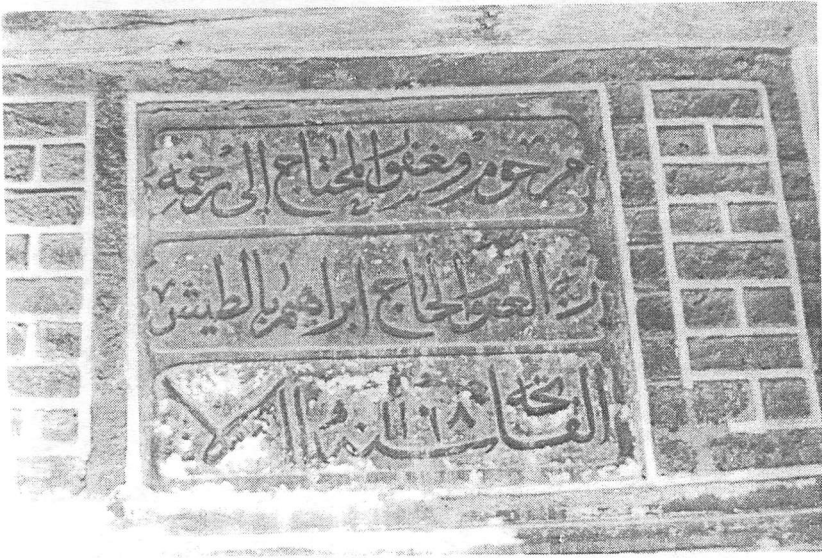 مرحوم ومغفور المحتاج إلى رحمة
ربه الغفور الحاج ابراهيم
الفاتحه سنة